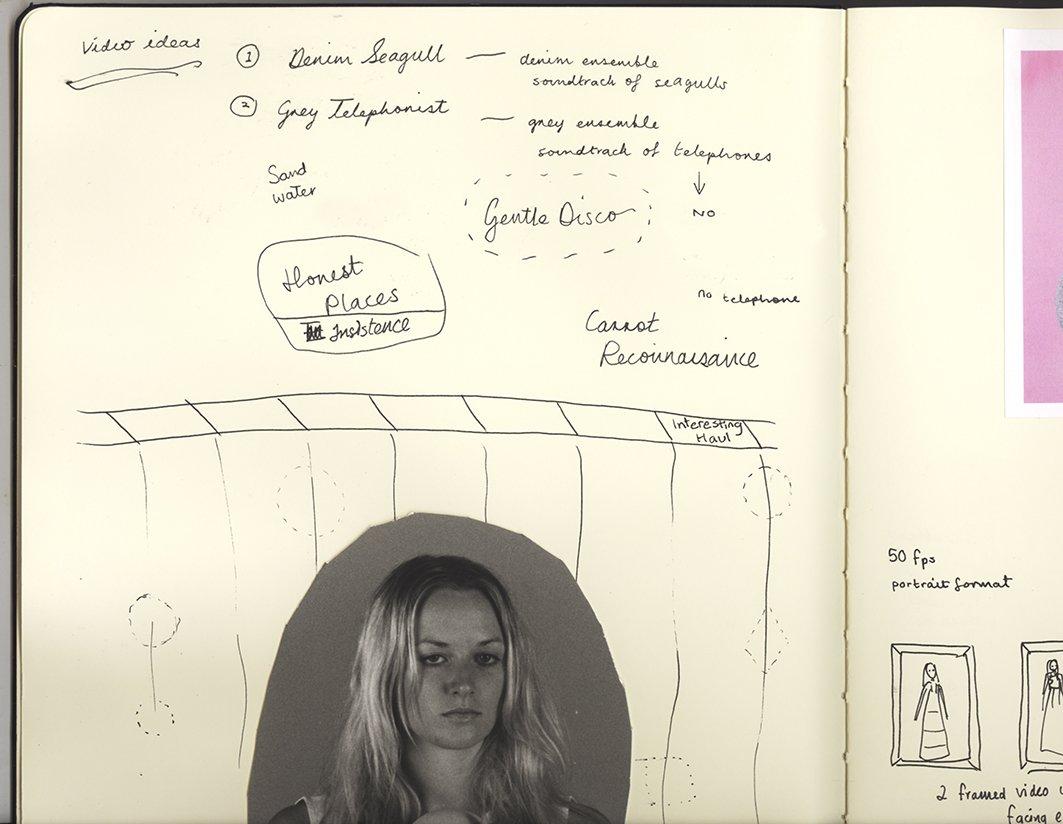 Video ideas
1 Denim Seagull — denim ensemble
soundtrack of seagulls
2 Grey Telephonist — grey ensemble
soundtrack of telephones
↓
NO
Sand
water
Gentle Disco
Honest
Places
Insistence
no telephone
Carrot
Reconnaisance
Interesting
Haul
50 fps
portrait format
2 framed video
facing